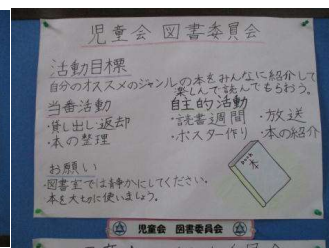 児童会 図書委員会
活動目標
自分のオススメのジャンルの本をみんなに紹介して
楽しんで読んでもらおう。
当番活動
・貸し出し・返却
・本の整理
自主的活動
・読書週間 ・放送
・ポスター作り ・本の紹介
お願い
・図書室では静かにしてください。
本を大切に使いましょう。
児童会 図書委員会